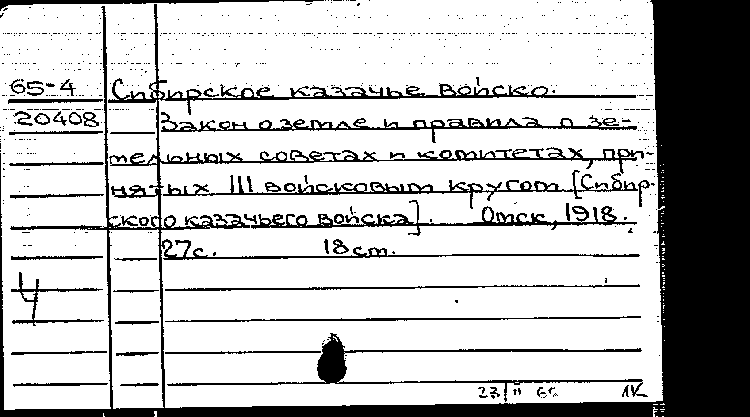 65-4 Сибирское казачье войско.
20408 Закон о земле и правила о зе-
мельных советах и комитетах, при-
нятых III войсковым кругом [Сибир-
ского казачьего войска]. Омск, 1918.
27с. 18см.
Ч